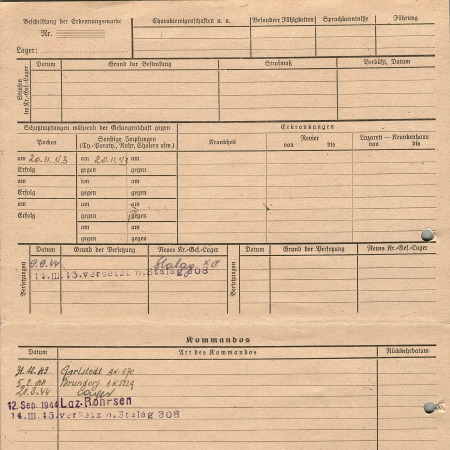 Beschriftung der Erkennungsmarke
Nr.
Lager:
Charaktereigenschaften u. a.
Besondere Fähigkeiten
Sprachkenntnisse
Führung
Strafen im Kr.-Gef.-Lager
Datum
Grund der Bestrafung
Strafmaß
Verbüßt, Datum
Schutzimpfungen während der Gefangenschaft gegen
Erkrankungen
Pocken
Sonstige Impfungen
(Ty.-Paraty., Ruhr, Cholera usw.)
Krankheit
Revier
von bis
Lazarett — Krankenhaus
von bis
am 20.11.43 am 20.11.43 am
Erfolg gegen gegen
am am am
Erfolg gegen gegen
am am am
Erfolg gegen gegen
am am
gegen gegen
Versetzungen
Datum
Grund der Versetzung
Neues Kr.-Gef.-Lager
Versetzungen
Datum
Grund der Versetzung
Neues Kr.-Gef.-Lager
9.9.44 Stalag XB
14. III. 45. versetzt n. Stalag 308
Kommandos
Datum
Art des Kommandos
Rückkehrdatum
Garlstedt
Brundorf
Lager
12. Sep. 1944 Laz-Rohrsen
14. III. 45. versetzt n. Stalag 308